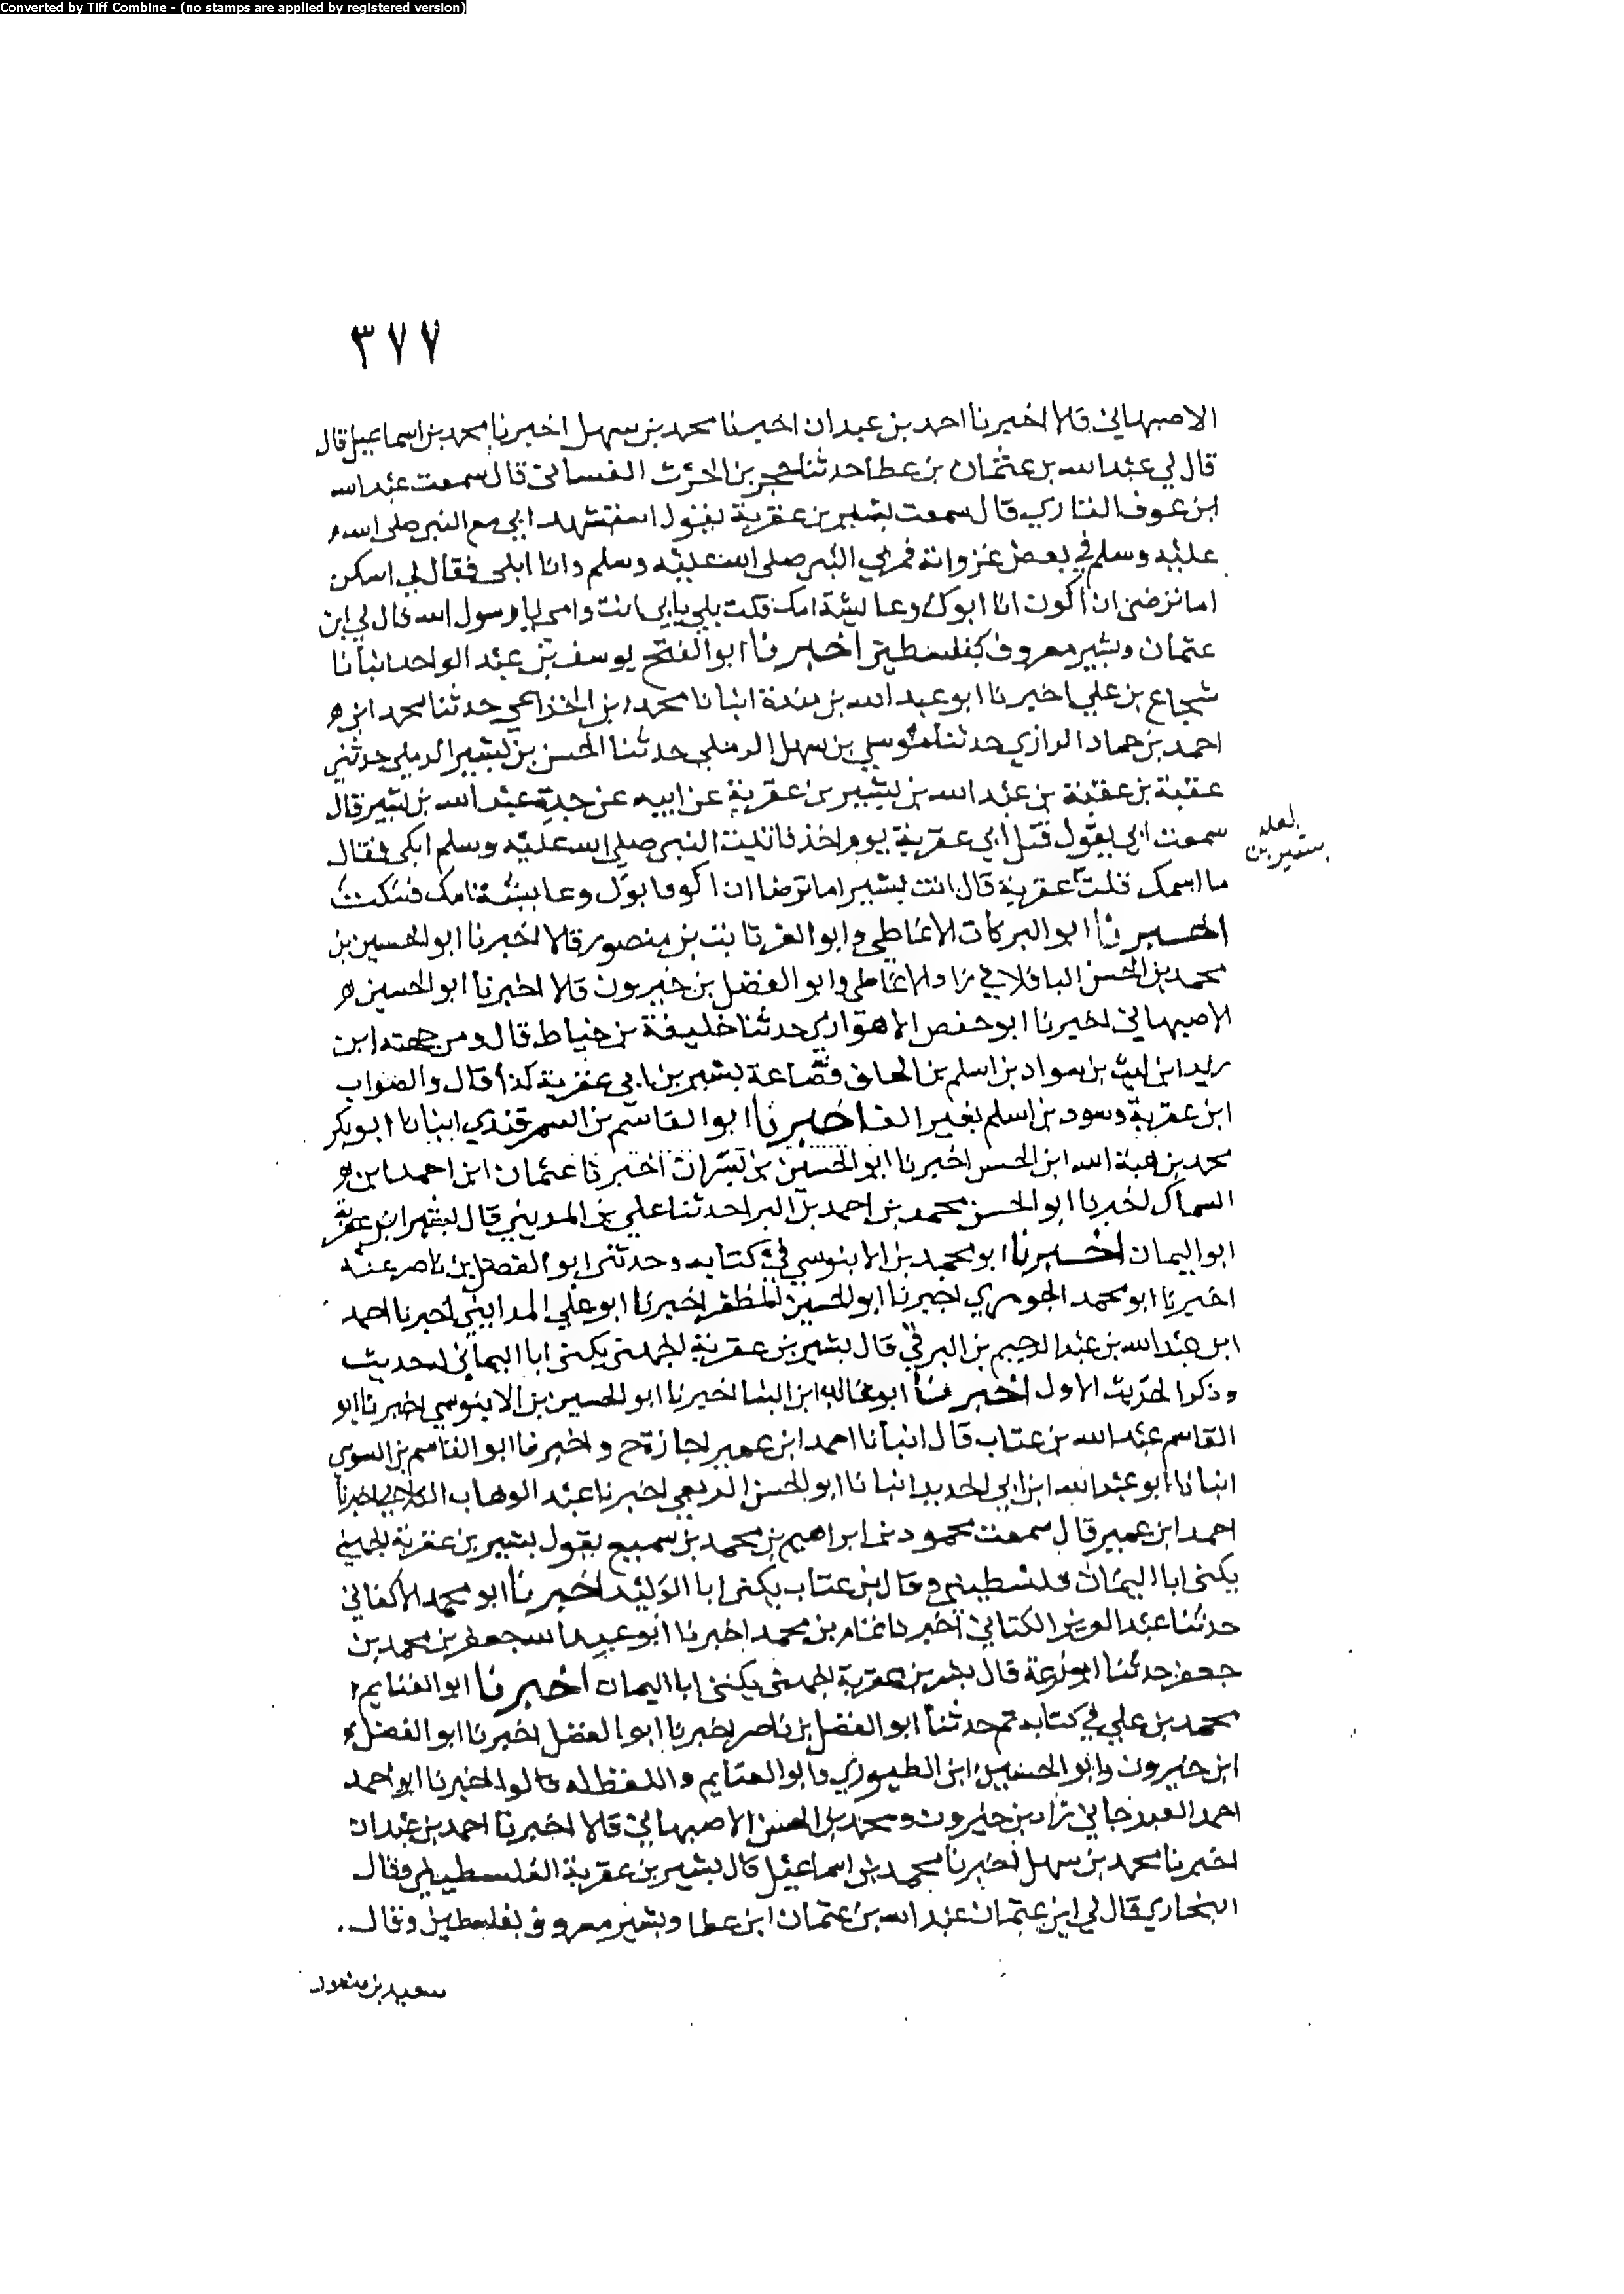 Converted by Tiff Combine - (no stamps are applied by registered version)
٣٧٧
الاصبهاني قالا اخبرنا احمد بن عبدان اخبرنا محمد بن سهل اخبرنا محمد بن اسماعيل قال
قال لي عبد الله بن عثمان بن عطا حدثنا حجر بن الحرث الغساني قال سمعت عبد الله
ابن عوف القاري قال سمعت بشير بن عقربة يقول استشهد ابي مع النبي صلى الله
عليه وسلم في بعض غزواته فمر بي النبي صلى الله عليه وسلم وانا ابكي فقال لي اسكن
اما ترضى ان اكون انا ابوك وعائشة امك قلت بلى بابي انت وامي يا رسول الله قال لي ابن
عثمان وبشير معروف بفلسطين اخبرنا ابو الفتح يوسف بن عبد الواحد انبانا
شجاع بن علي اخبرنا ابو عبد الله بن مندة انبانا محمد بن الخزاعي حدثنا محمد ابن
احمد بن حماد الرازي حدثنا موسى بن سهل الرملي حدثنا الحسن بن بشير الرملي حدثني
عقبة بن عقبة بن عبد الله بن بشير بن عقربة عن ابيه عن جده عبد الله بن بشير قال
سمعت ابي يقول قتل ابي عقربة يوم احد فاتيت النبي صلى الله عليه وسلم ابكي فقال
لعله
بشير بن
ما اسمك قلت عقربة قال انت بشير اما ترضا ان اكون ابوك وعايشة امك فسكت
اخبرنا ابو البركات الانماطي وابو العز ثابت بن منصور قالا اخبرنا ابو الحسين بن
محمد بن الحسن الباقلاني زاد الانماطي وابو الفضل بن خيرون قالا اخبرنا ابو الحسين
الاصبهاني اخبرنا ابو حفص الاهوازي حدثنا خليفة بن خياط قال ومن جهينة ابن
زيد ابن ليث بن سواد بن اسلم بن الحاف وقضاعة بشير بن ابي عقربة كذا قال والصواب
ابن عقربة وسود بن اسلم بغير الف اخبرنا ابو القاسم بن السمرقندي انبانا ابو بكر
محمد بن هبة الله ابن الحسن اخبرنا ابو الحسين بن بشران اخبرنا عثمان ابن احمد ابن
السماك اخبرنا ابو الحسن محمد بن احمد بن البرا حدثنا علي بن المديني قال بشير ابن عقربة
ابو اليمان اخبرنا ابو محمد بن الابنوسي في كتابه وحدثني ابو الفضل بن ناصر عنه
اخبرنا ابو محمد الجوهري اخبرنا ابو الحسين المظفر اخبرنا ابو علي المدايني اخبرنا احمد
ابن عبد الله بن عبد الرحيم بن البرقي قال بشير بن عقربة الجهني يكنى ابا اليماني لحديث
وذكر الحديث الاول اخبرنا ابو غالب ابن البنا اخبرنا ابو الحسين بن الابنوسي اخبرنا ابو
القاسم عبد الله بن عتاب قال انبانا احمد ابن عمير اجازة ح واخبرنا ابو القاسم بن السوسي
انبانا ابو عبد الله ابن ابي الحديد انبانا ابو الحسن الربعي اخبرنا عبد الوهاب الكلابي اخبرنا
احمد ابن عمير قال سمعت محمود بن ابراهيم بن محمد بن سميع يقول بشير بن عقربة الجهني
يكنى ابا اليمان فلسطيني وقال ابن عتاب يكنى ابا الوليد اخبرنا ابو محمد الاكفاني
حدثنا عبد العزيز الكتاني اخبرنا تمام بن محمد اخبرنا ابو عبد الله جعفر بن محمد بن
جعفر حدثنا ابو زرعة قال بشير بن عقربة الجهني يكنى ابا اليمان اخبرنا ابو الغنايم
محمد بن علي في كتابه ثم حدثنا ابو الفضل بن ناصر اخبرنا ابو الفضل اخبرنا ابو الفضل
ابن خيرون وابو الحسين ابن الطيوري وابو الغنايم واللفظ له قالوا اخبرنا ابو احمد
احمد الغندجاني زاد بن خيرون ومحمد بن الحسن الاصبهاني قالا اخبرنا احمد بن عبدان
اخبرنا محمد بن سهل اخبرنا محمد بن اسماعيل قال بشير بن عقربة الفلسطيني وقال
البخاري قال لي ابن عثمان عبد الله بن عثمان ابن عطا وبشير معروف بفلسطين وقال
سعيد بن منصور